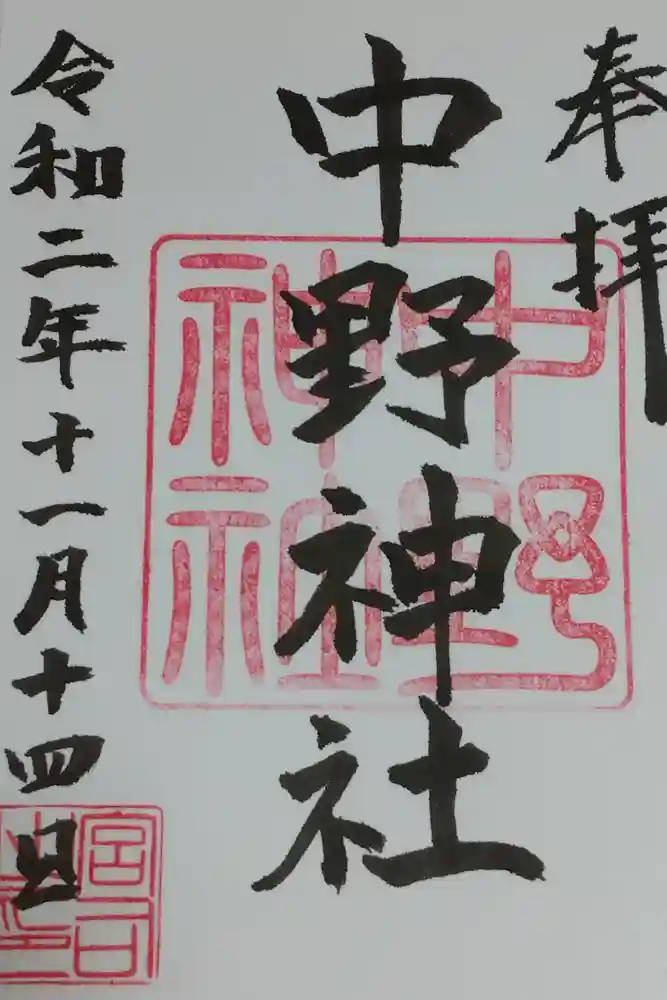 奉拝
中野神社
令和二年十一月十四日
中野
神社
宮司
之印